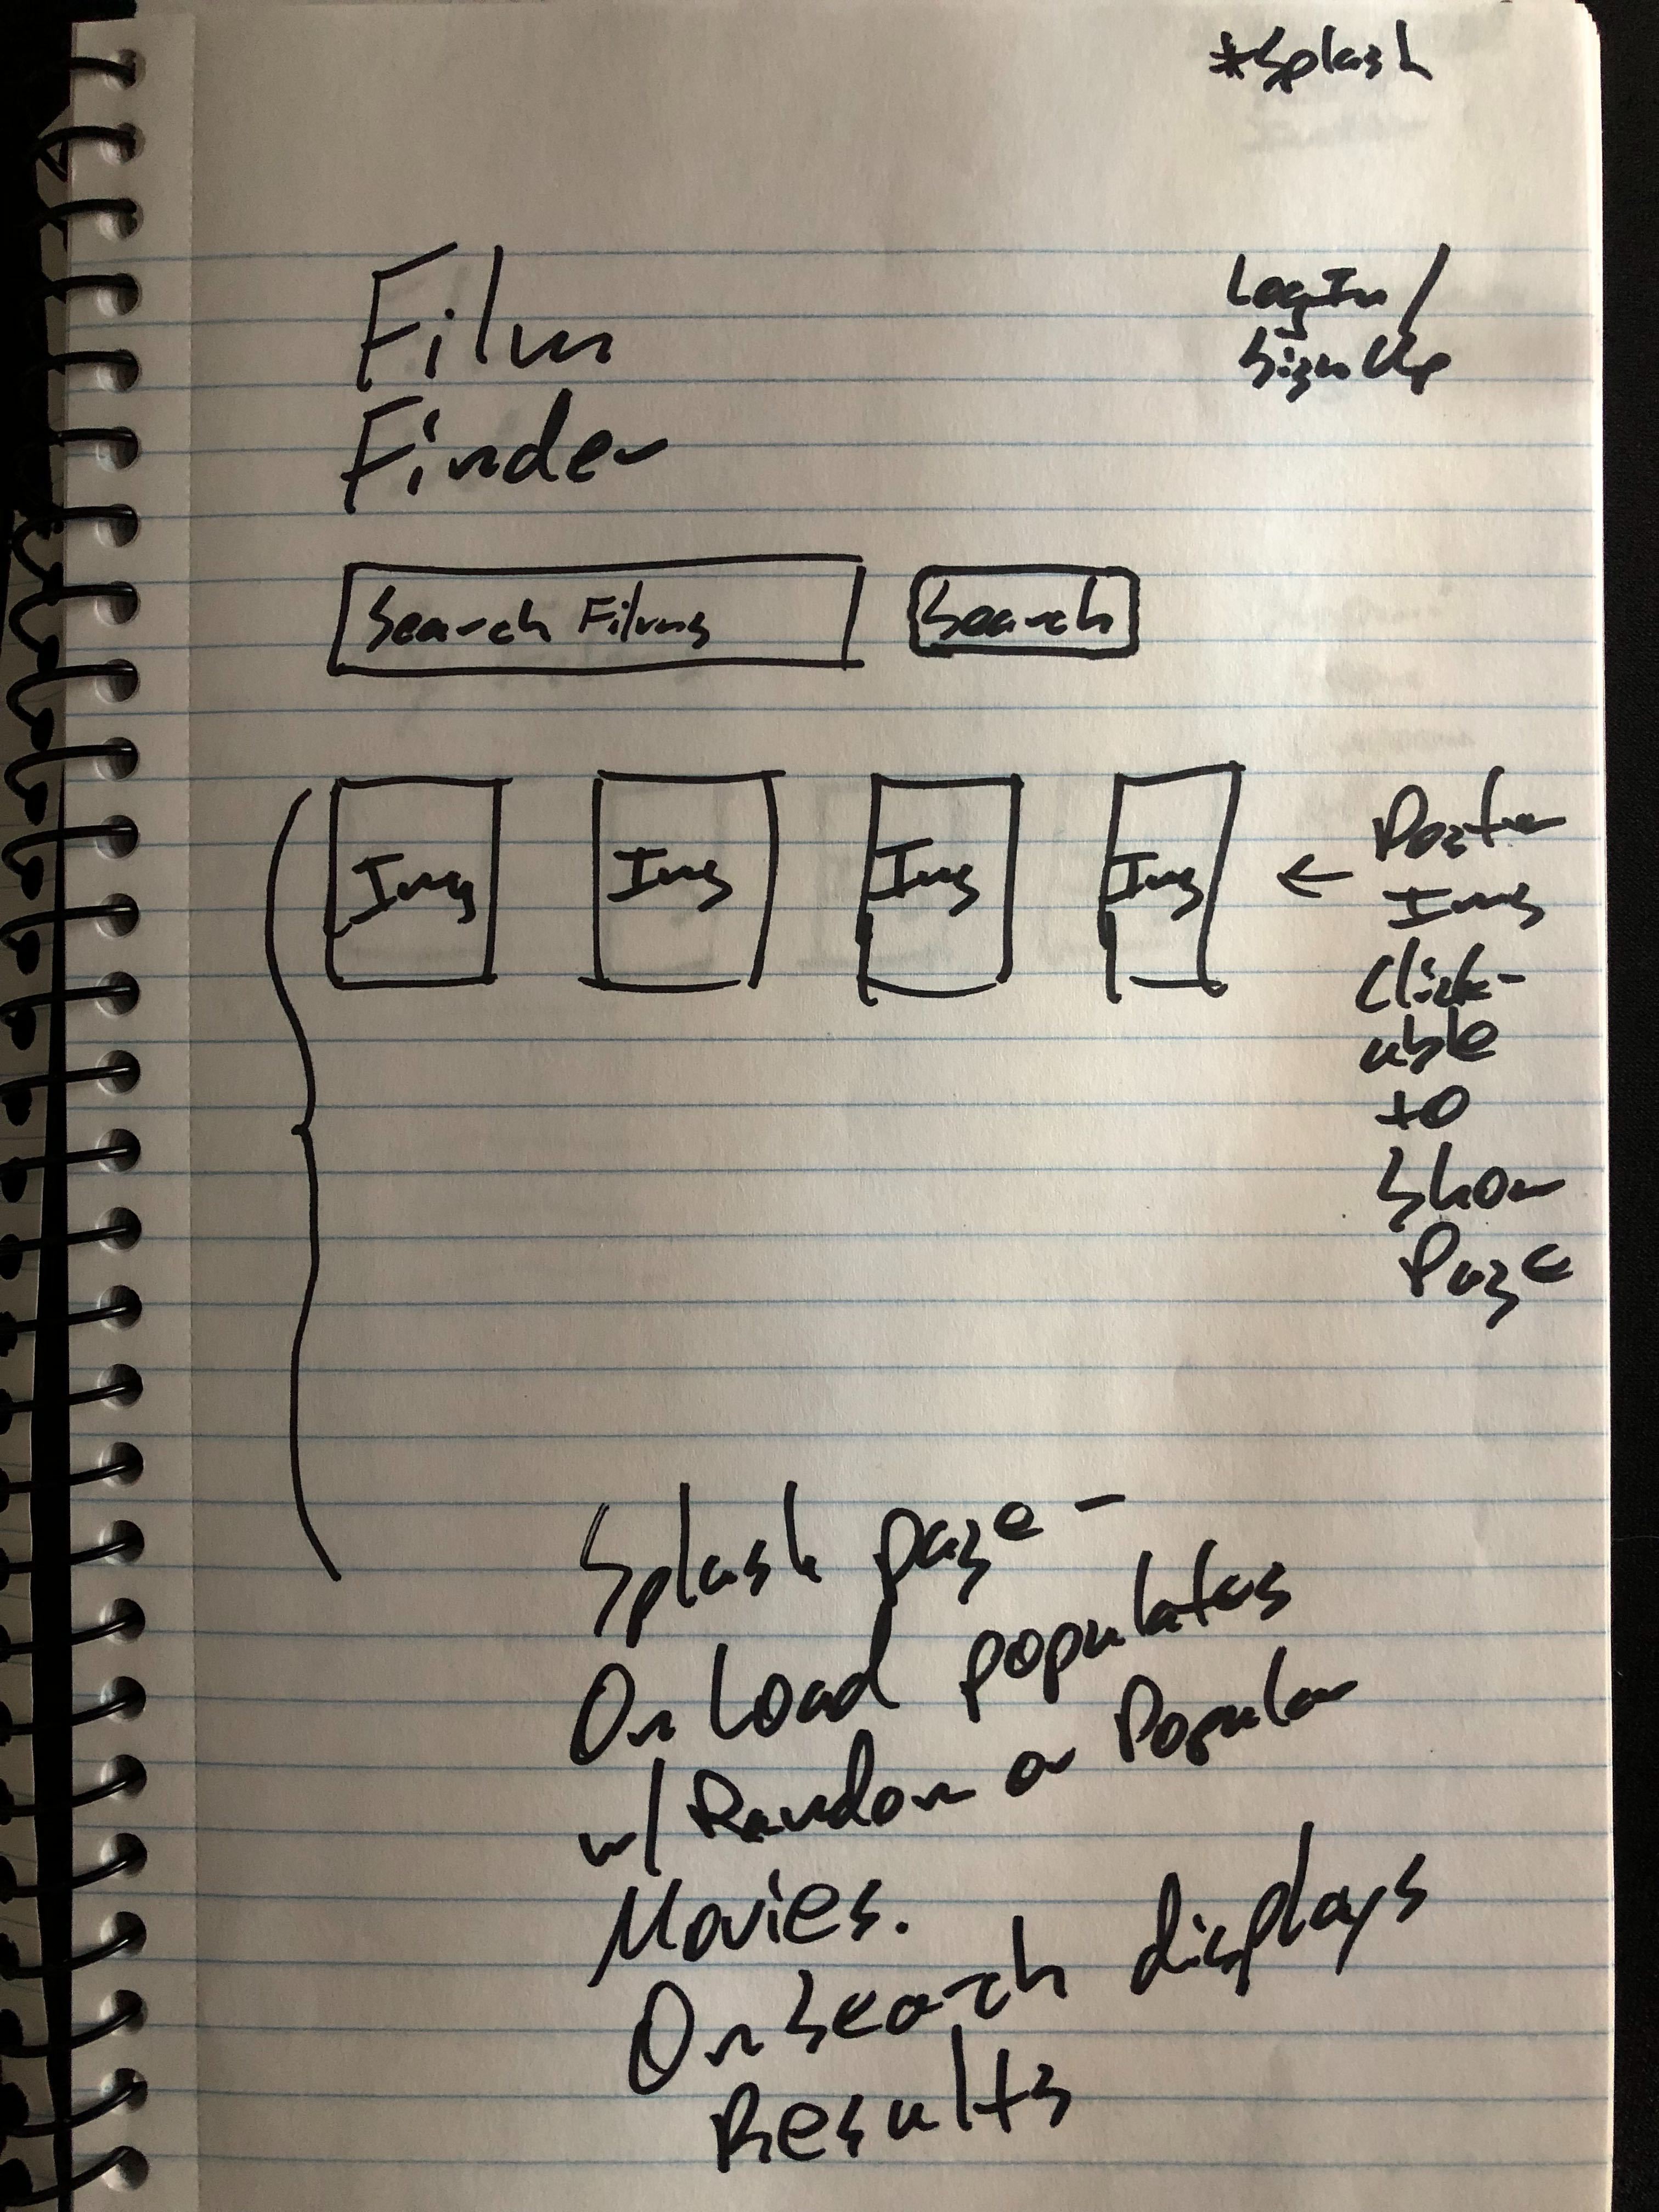 *Splash
Film
Finder
LogIn/
SignUp
Search Films
Search
Img
Img
Img
Img
← Poster
Img
Click-
able
to
Show
Page
Splash page -
On Load populates
w/ Random or Popular
Movies.
On Search displays
Results